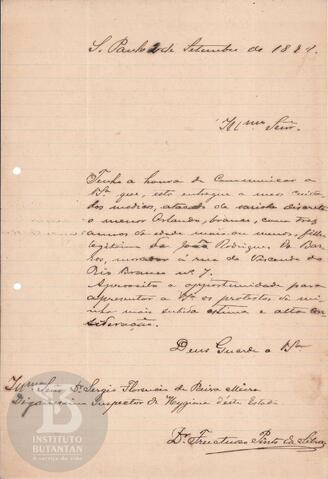 S. Paulo 2 de Setembro de 1891.
Illmo Snr.
Tenho a honra de communicar a
Vsa que, esta entregue a meos cuida
dos medicos, atacado de variola discreta
o menor Orlando, branco, com tres
annos de edade mais ou menos, filho
legitimo de João Rodrigues de Bar
ros, morador á rua do Visconde do
Rio Branco nº 7.
Aproveito a opportunidade para
apresentar a Vsa os protestos de mi
nha mais subida estima e alta con
sideração.
Deus Guarde a Vsa
Illmo Snr Dr Sergio Florencio de Paiva Meira
Dignissimo Inspector de Hygiene deste Estado
Dr. Fructuoso Pinto da Silva
INSTITUTO
BUTANTAN
A serviço da vida